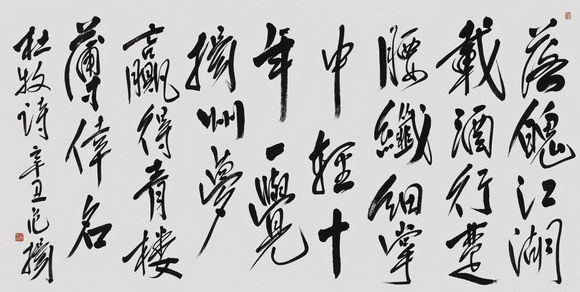 落魄江湖
載酒行楚
腰纖細掌
中輕十
年一覺
揚州夢
贏得青楼
薄倖名
杜牧诗辛丑范揚